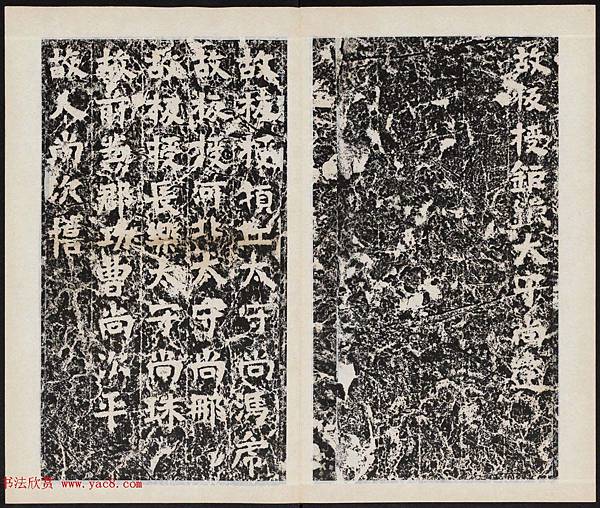 故板授鉅鹿太守尚登
故板授頓丘太守尚馮虎
故板授河北太守尚
故板授長樂太守尚珠
故前郡功曹尚次平
故人尚次憘
书法欣赏 www.yac8.com